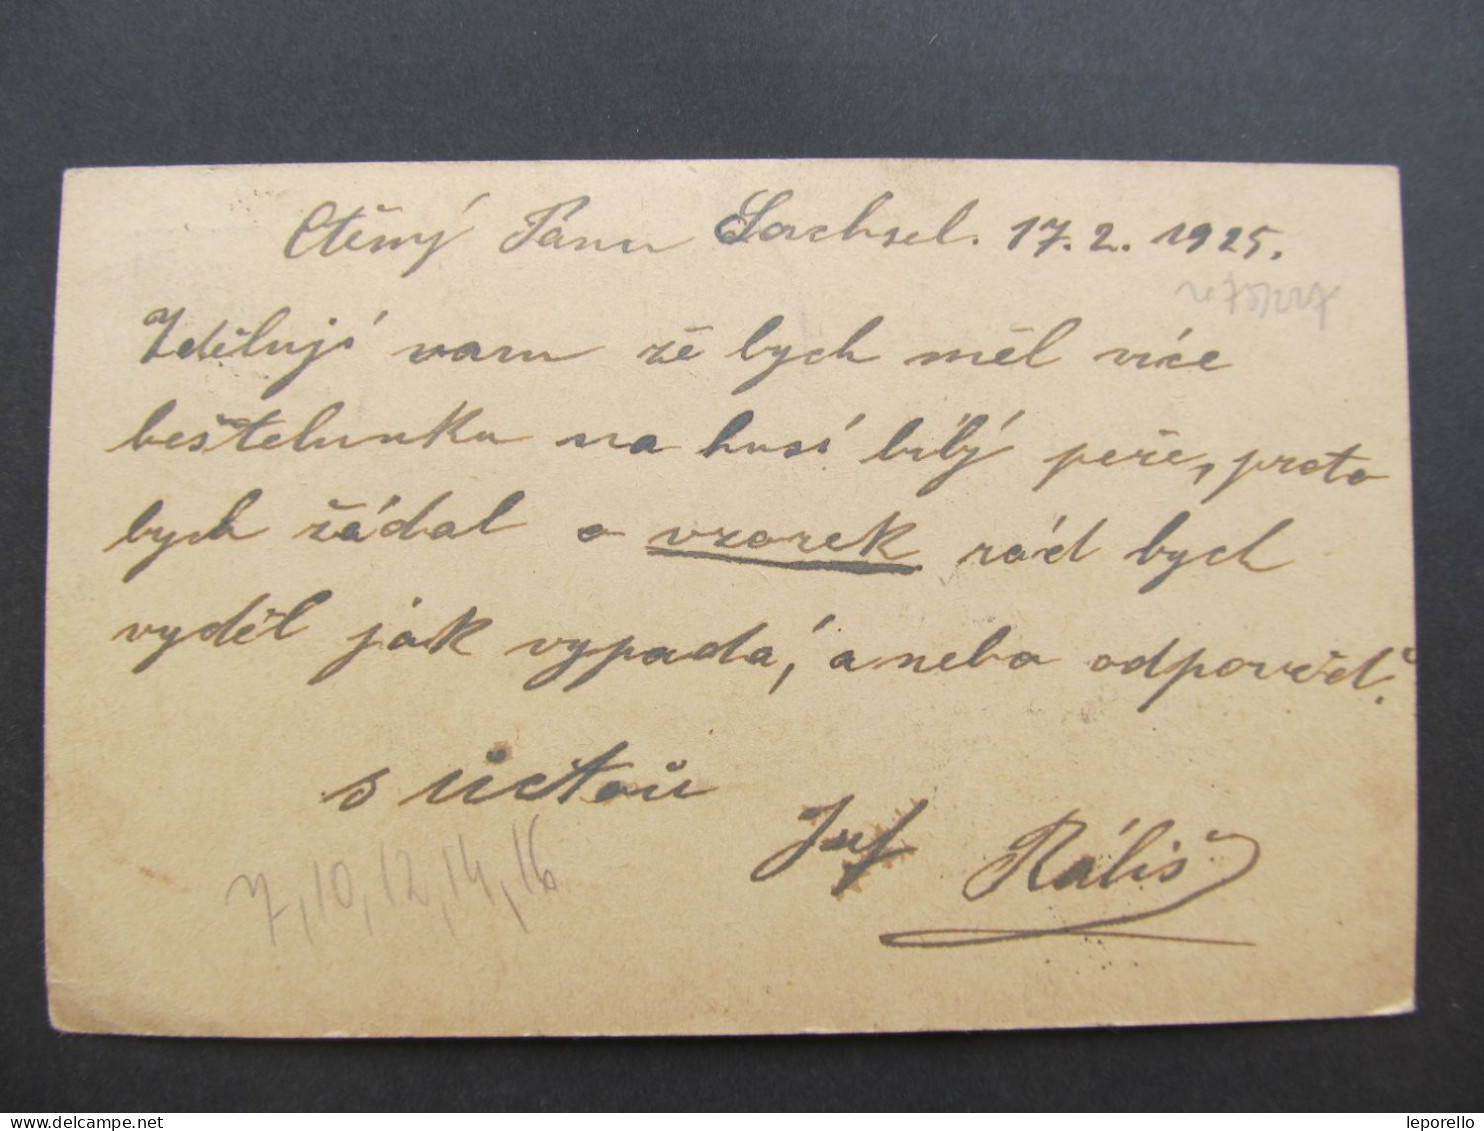 Ctěný Pánu Sachsel. 17.2. 1925.
Zdělují vam zě bych měl více
beštelunku na husí bílý peře, proto
bych žádal o vzorek rád bych
vyděl jak vypadá, anebo odpověď.
s úctoů
Josef Rališ
7, 10, 12, 14, 16
leporello